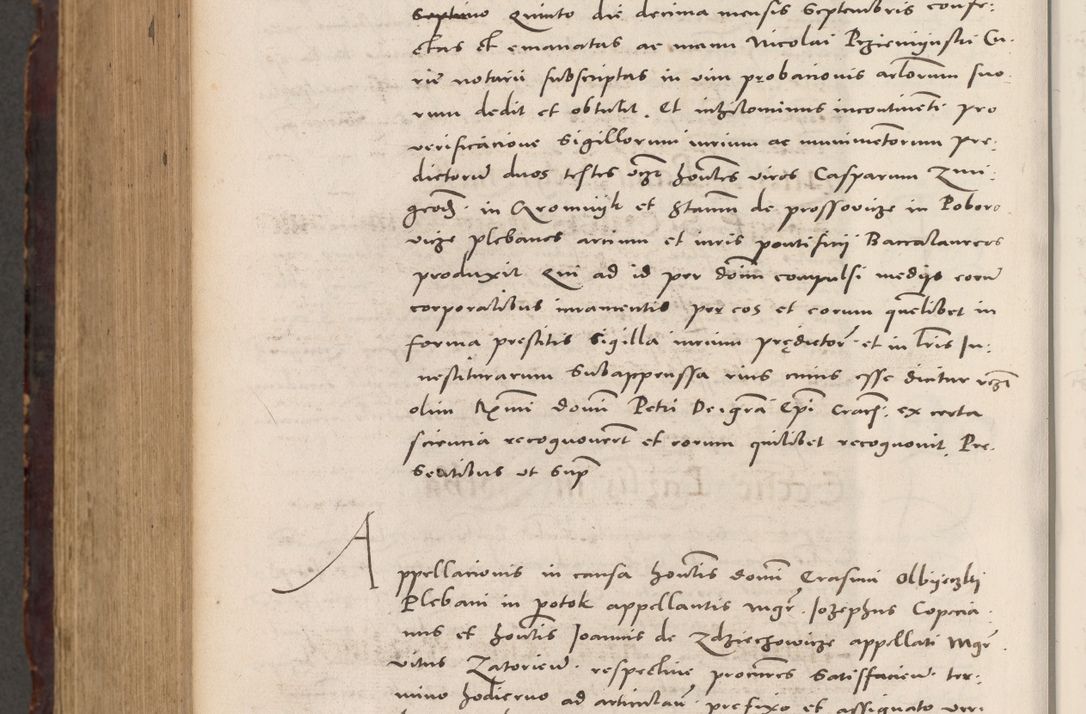 Septimo Quinto die decima mensis Septembris confe-
ctas et emanatas ac manu Nicolai Przieniijnski Cu-
rie notarii subscriptas in vim probacionis artlorum suo
rum dedit et obtulit. Et nihilominus incontinenti pro
verificacione Sigillorum iurium ac munimentorum pre-
dictorum duos testes vcz honbles viros Casparum Zmi-
grod. in et Stanm de prossovicze in Poboro
vicze plebanos arcium et iuris pontificij Baccalaureos
produxit Qui ad id per domi compulsi medijs eorum
corporalibus iuramentis per eos et eorum quelibet in
forma prestitis Sigilla iurium predictor. et in Lris In-
uestiturarum Subappressa eius cuius esse dicitur vczt
olim Rmi domi Petri Dei gra Epi Cracn. ex certa
sciencia recognouerut et eorum quilibet recognouit. Pre-
sentibus vt Supr
Appellacionis in causa honblis domi Erasmi
Plebani in potok appellantis Mgr. Jozephus Copecia
nus et honblis Joannis de Zdziechowicze appellati Mgr
vitus Zatorien. respective procures Satisfacien. ter-
mino hodierno ad articulan. prefixo et assignato ver-